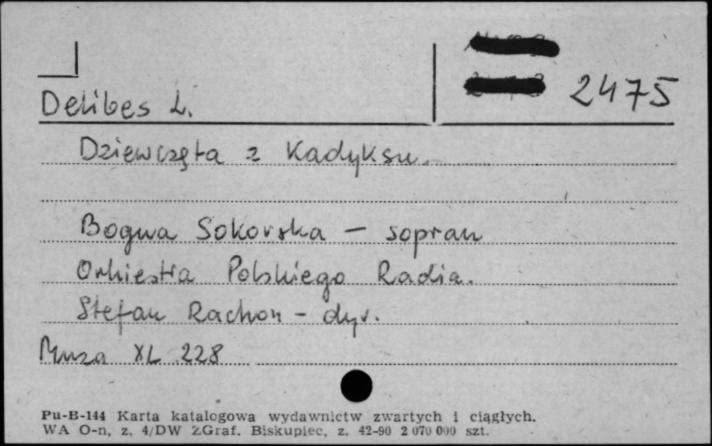 2475
Delibes L.
Dziewczęta z Kadyksu.
Bogna Sokorska – sopran
Orkiestra Polskiego Radia.
Stefan Rachoń – dyr.
Muza XL 228
Pu-B-144 Karta katalogowa wydawnictw zwartych i ciągłych.
WA O-n, z. 4/DW ZGraf. Biskupiec, z. 42-90 2 070 000 szt.